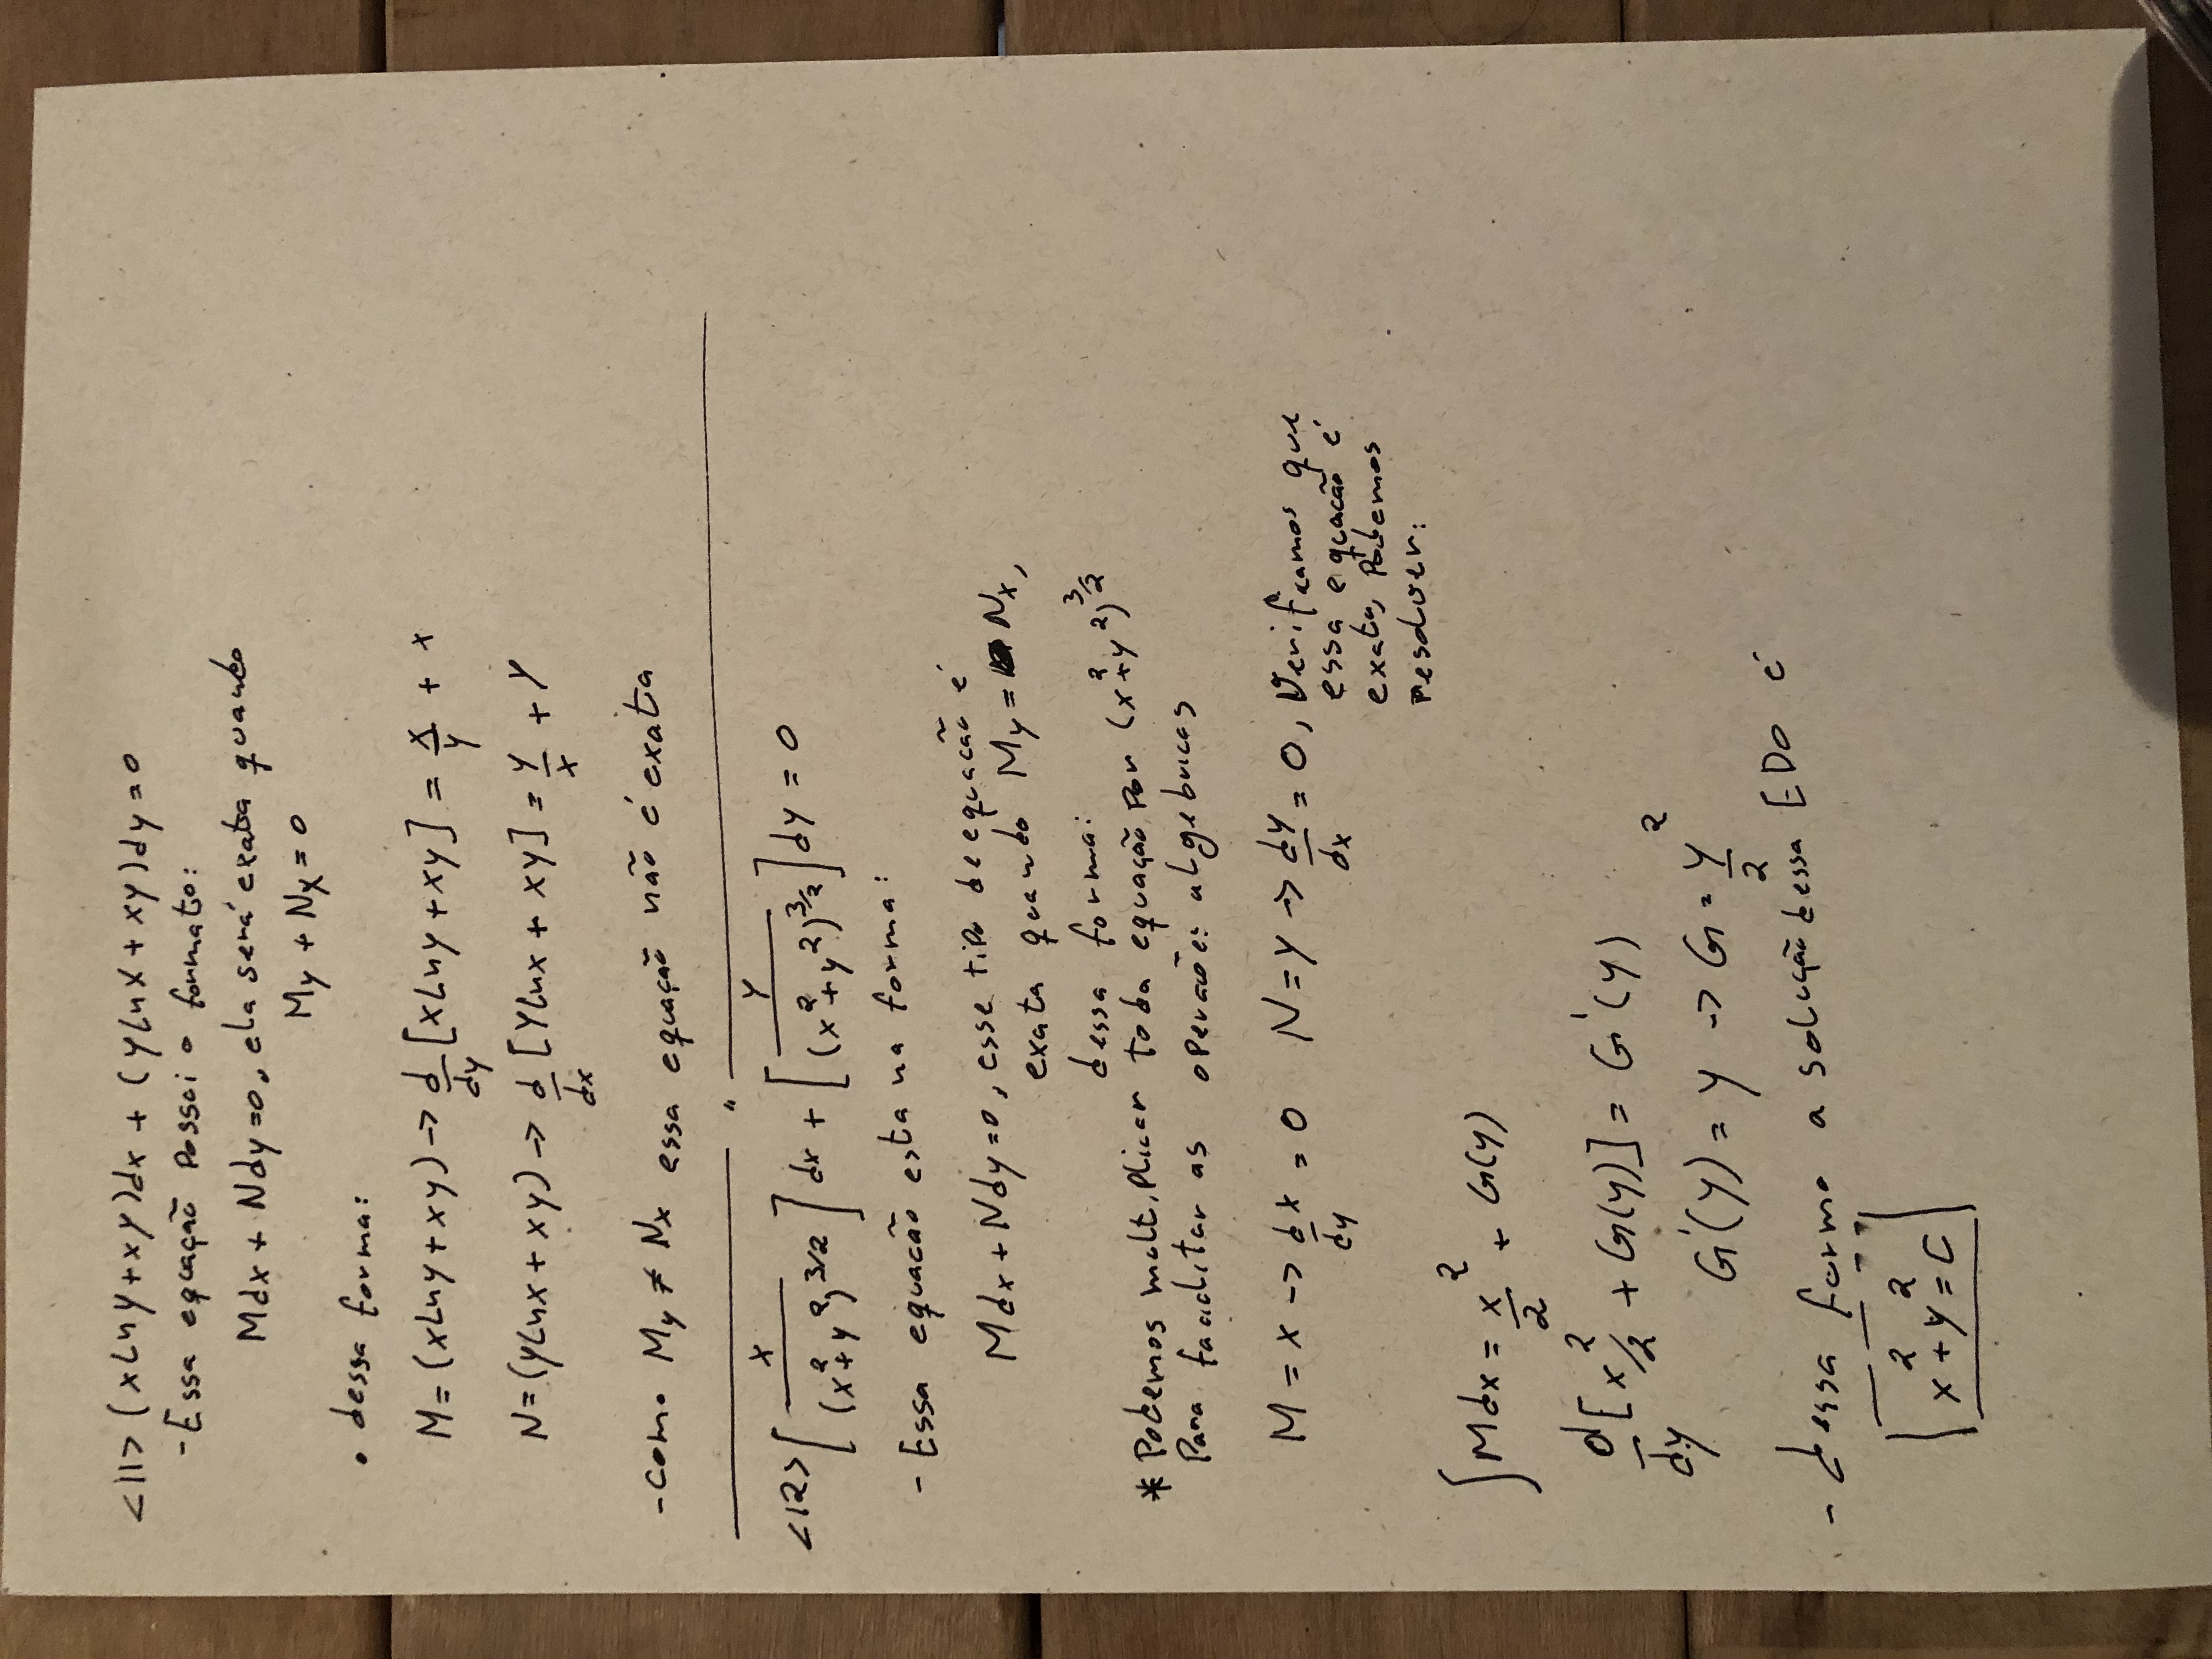 <11> (xLny+xy)dx + (yLnx+xy)dy=0
-Essa equação Possui o formato:
Mdx + Ndy=0, ela será exata quando
My + Nx = 0
• dessa forma:
M=(xLny+xy) -> d/dy [xLny+xy] = x/y + x
N=(yLnx+xy) -> d/dx [yLnx + xy] = y/x + y
-como My ≠ Nx essa equação não é exata
"
<12> [x/(x²+y²)^3/2] dx + [y/(x²+y²)^3/2] dy = 0
- Essa equacão esta na forma:
Mdx+Ndy=0, esse tipo de equacão é
exata quando My = Nx,
dessa forma:
* Podemos multiplicar toda equação por (x²+y²)^3/2
Para facilitar as operacões algebricas
M = x -> d/dy x = 0 N = y -> dy/dx = 0, Verificamos que
essa equacão é
exata, Podemos
resolver:
∫Mdx = x²/2 + G(y)
d/dy [x²/2 + G(y)] = G'(y)
G'(y) = y -> G = y²/2
- dessa forma a solução dessa EDO é
x²+y²=C